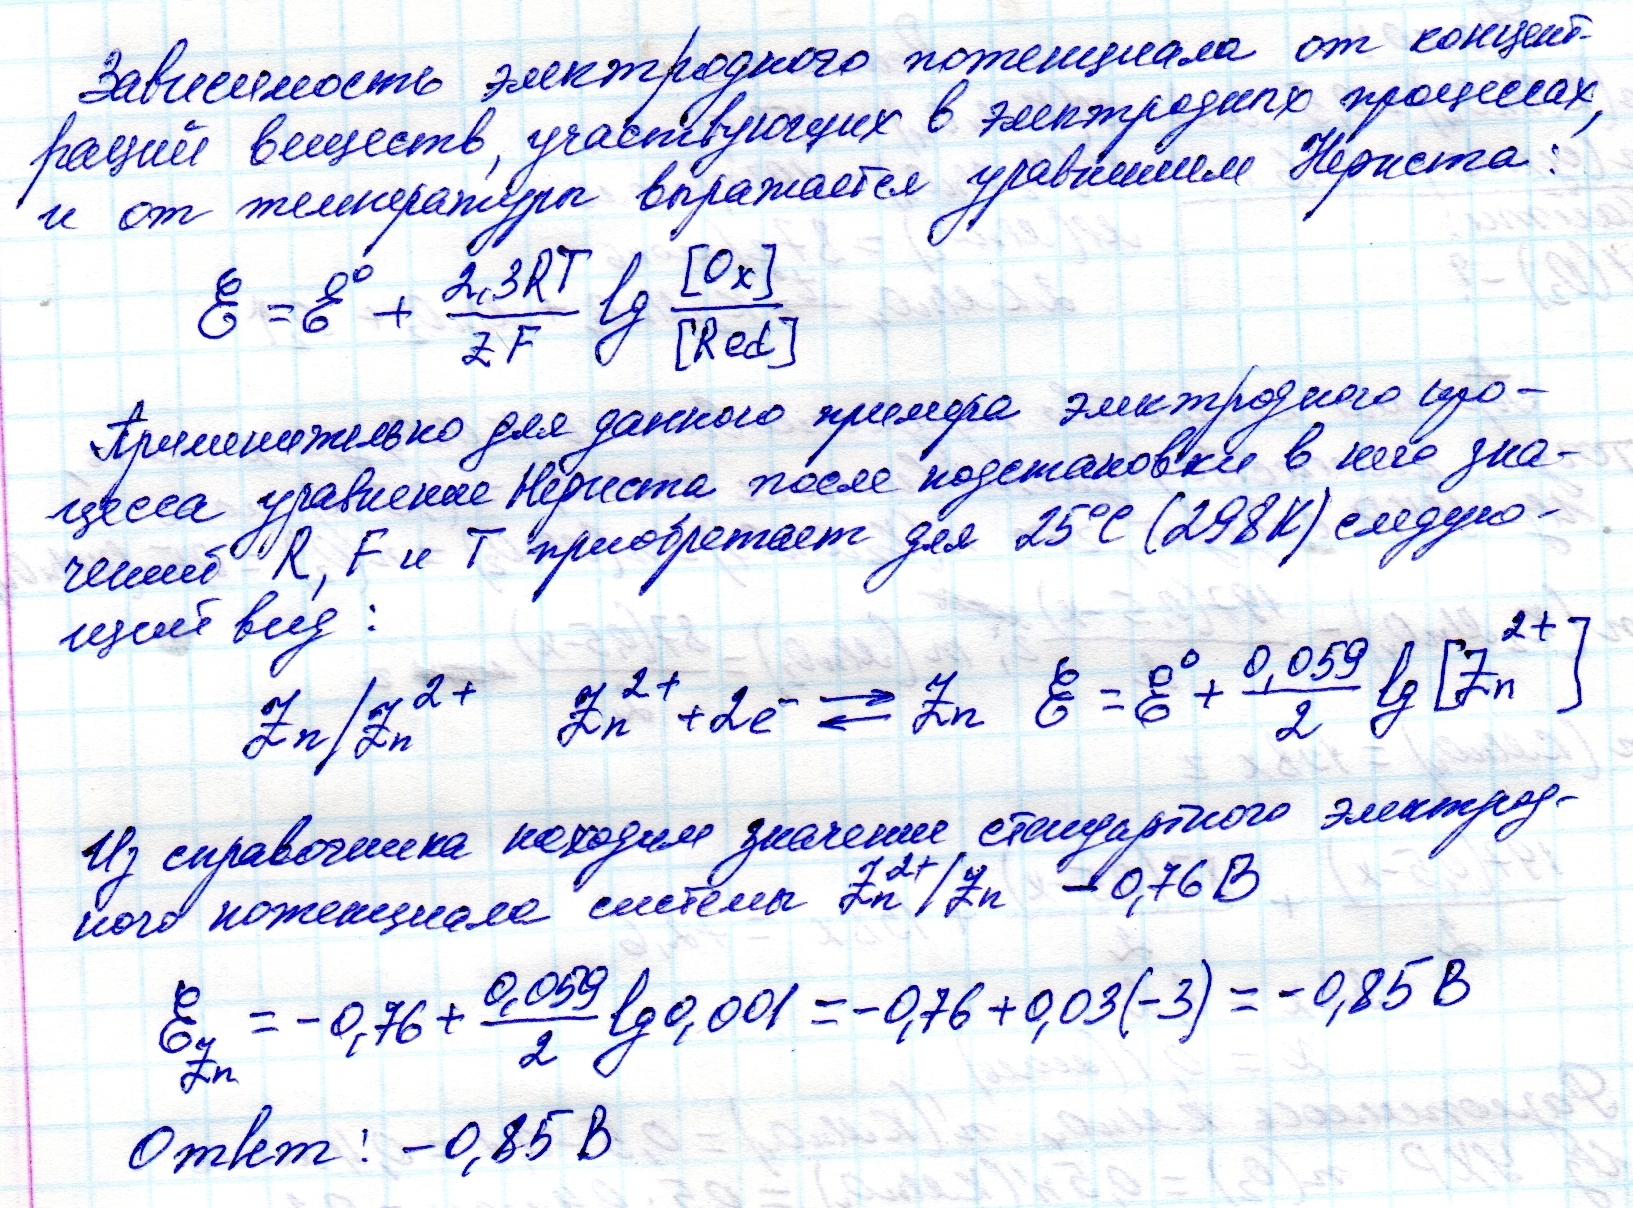 Зависимость электродного потенциала от концент-
раций веществ, участвующих в электродных процессах,
и от температуры выражается уравнением Нернста:
ℰ = ℰ⁰ + 2,3RT/zF lg [Ox]/[Red]
Применительно для данного примера электродного про-
цесса уравнение Нернста после подстановки в него зна-
чений R, F и T приобретает для 25°C (298K) следую-
щий вид:
Zn/Zn²⁺ Zn²⁺ + 2e⁻ ⇄ Zn ℰ = ℰ⁰ + 0,059/2 lg [Zn²⁺]
Из справочника находим значение стандартного электрод-
ного потенциала системы Zn²⁺/Zn – 0,76 В
ℰ_Zn = -0,76 + 0,059/2 lg 0,001 = -0,76 + 0,03(-3) = -0,85 В
Ответ: -0,85 В